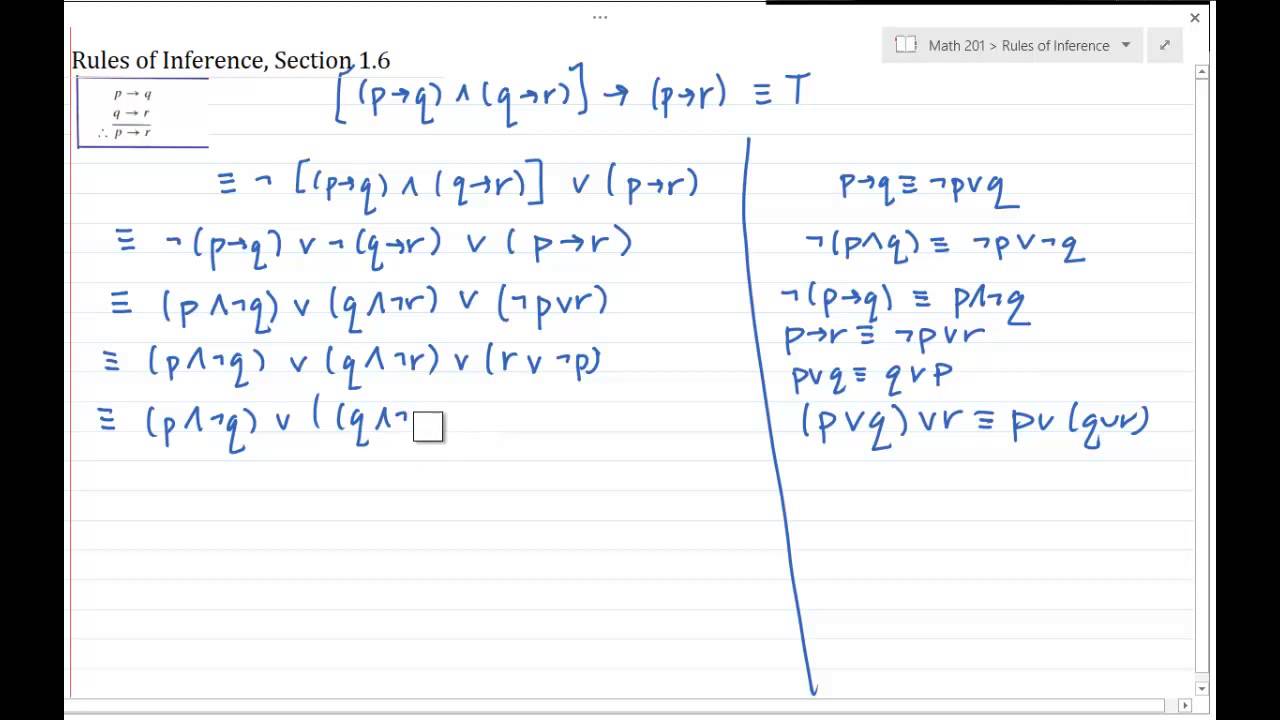 ...
Math 201 > Rules of Inference
Rules of Inference, Section 1.6
p → q
q → r
∴ p → r
[(p→q) ∧ (q→r)] → (p→r) ≡ T
≡ ¬ [(p→q) ∧ (q→r)] ∨ (p→r)
≡ ¬(p→q) ∨ ¬(q→r) ∨ (p→r)
≡ (p∧¬q) ∨ (q∧¬r) ∨ (¬p∨r)
≡ (p∧¬q) ∨ (q∧¬r) ∨ (r∨¬p)
≡ (p∧¬q) ∨ ((q∧¬
p→q ≡ ¬p∨q
¬(p∧q) ≡ ¬p∨¬q
¬(p→q) ≡ p∧¬q
p→r ≡ ¬p∨r
p∨q ≡ q∨p
(p∨q)∨r ≡ p∨(q∨r)